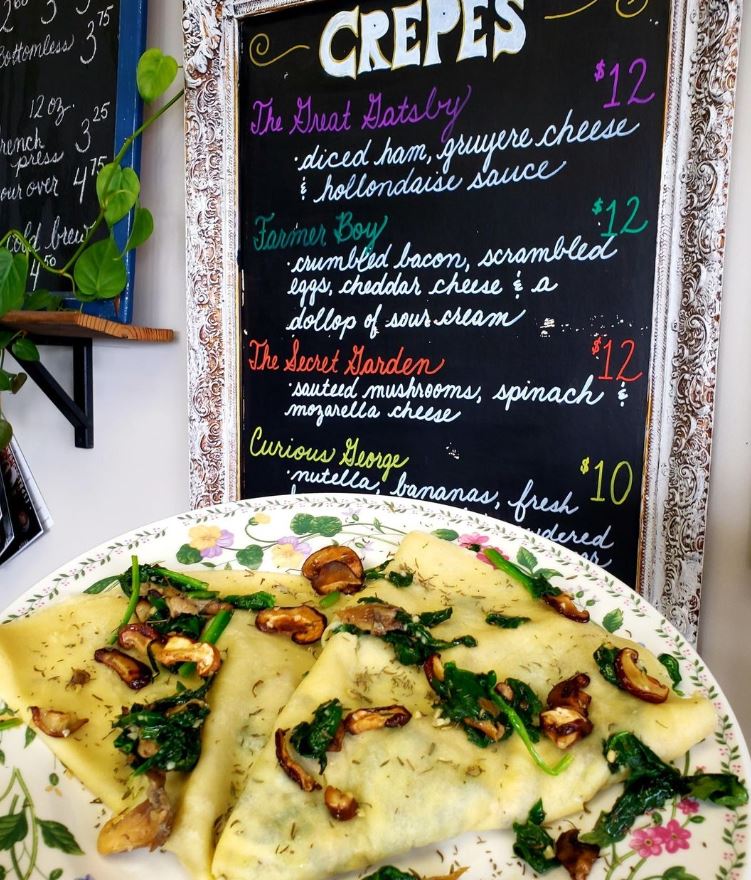 3 75
Bottomless
12 oz.
French press 3 25
pour over 4 75
cold brew
4 50
CREPES
The Great Gatsby $12
·diced ham, gruyere cheese
& hollondaise sauce
Farmer Boy $12
·crumbled bacon, scrambled
eggs, cheddar cheese & a
dollop of sour cream
The Secret Garden $12
·sauteed mushrooms, spinach &
mozarella cheese
Curious George $10
·nutella, bananas, fresh